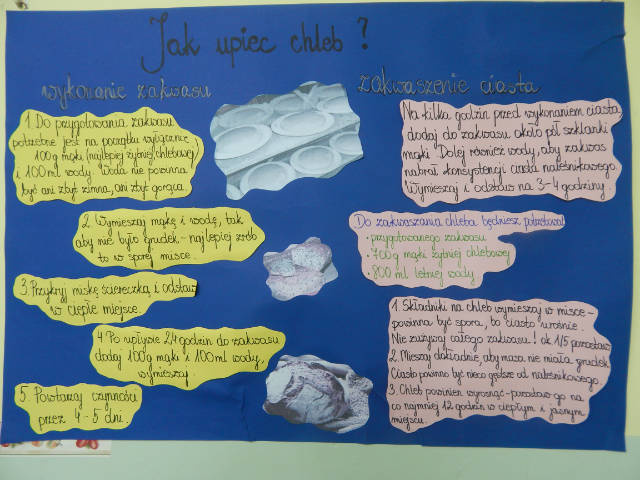 Jak upiec chleb?
wykonanie zakwasu
1. Do przygotowania zakwasu
potrzebne jest na początku wyłącznie
100g mąki (najlepiej żytniej chlebowej)
i 100ml wody. Woda nie powinna
być ani zbyt zimna, ani zbyt gorąca.
2. Wymieszaj mąkę i wodę, tak
aby nie było grudek - najlepiej zrób
to w sporej misce.
3. Przykryj miskę ściereczką i odstaw
w ciepłe miejsce.
4. Po upływie 24 godzin do zakwasu
dodaj 100g mąki i 100ml wody,
wymieszaj.
5. Powtarzaj czynności
przez 4-5 dni.
zakwaszenie ciasta
Na kilka godzin przed wykonaniem ciasta,
dodaj do zakwasu około pół szklanki
mąki. Dolej również wody, aby zakwas
nabrał konsystencji ciasta naleśnikowego.
Wymieszaj i odstaw na 3-4 godziny.
Do zakwaszania chleba będziesz potrzebował:
• przygotowanego zakwasu
• 700g mąki żytniej chlebowej
• 800 ml letniej wody
1. Składniki na chleb wymieszaj w misce -
powinna być spora, bo ciasto urośnie.
Nie zużywaj całego zakwasu! ok 1/5 pozostaw
2. Mieszaj dokładnie, aby masa nie miała grudek
Ciasto powinno być nieco gęstsze od naleśnikowego.
3. Chleb powinien wyrosnąć - pozostaw go na
co najmniej 12 godzin w ciepłym i jasnym
miejscu.